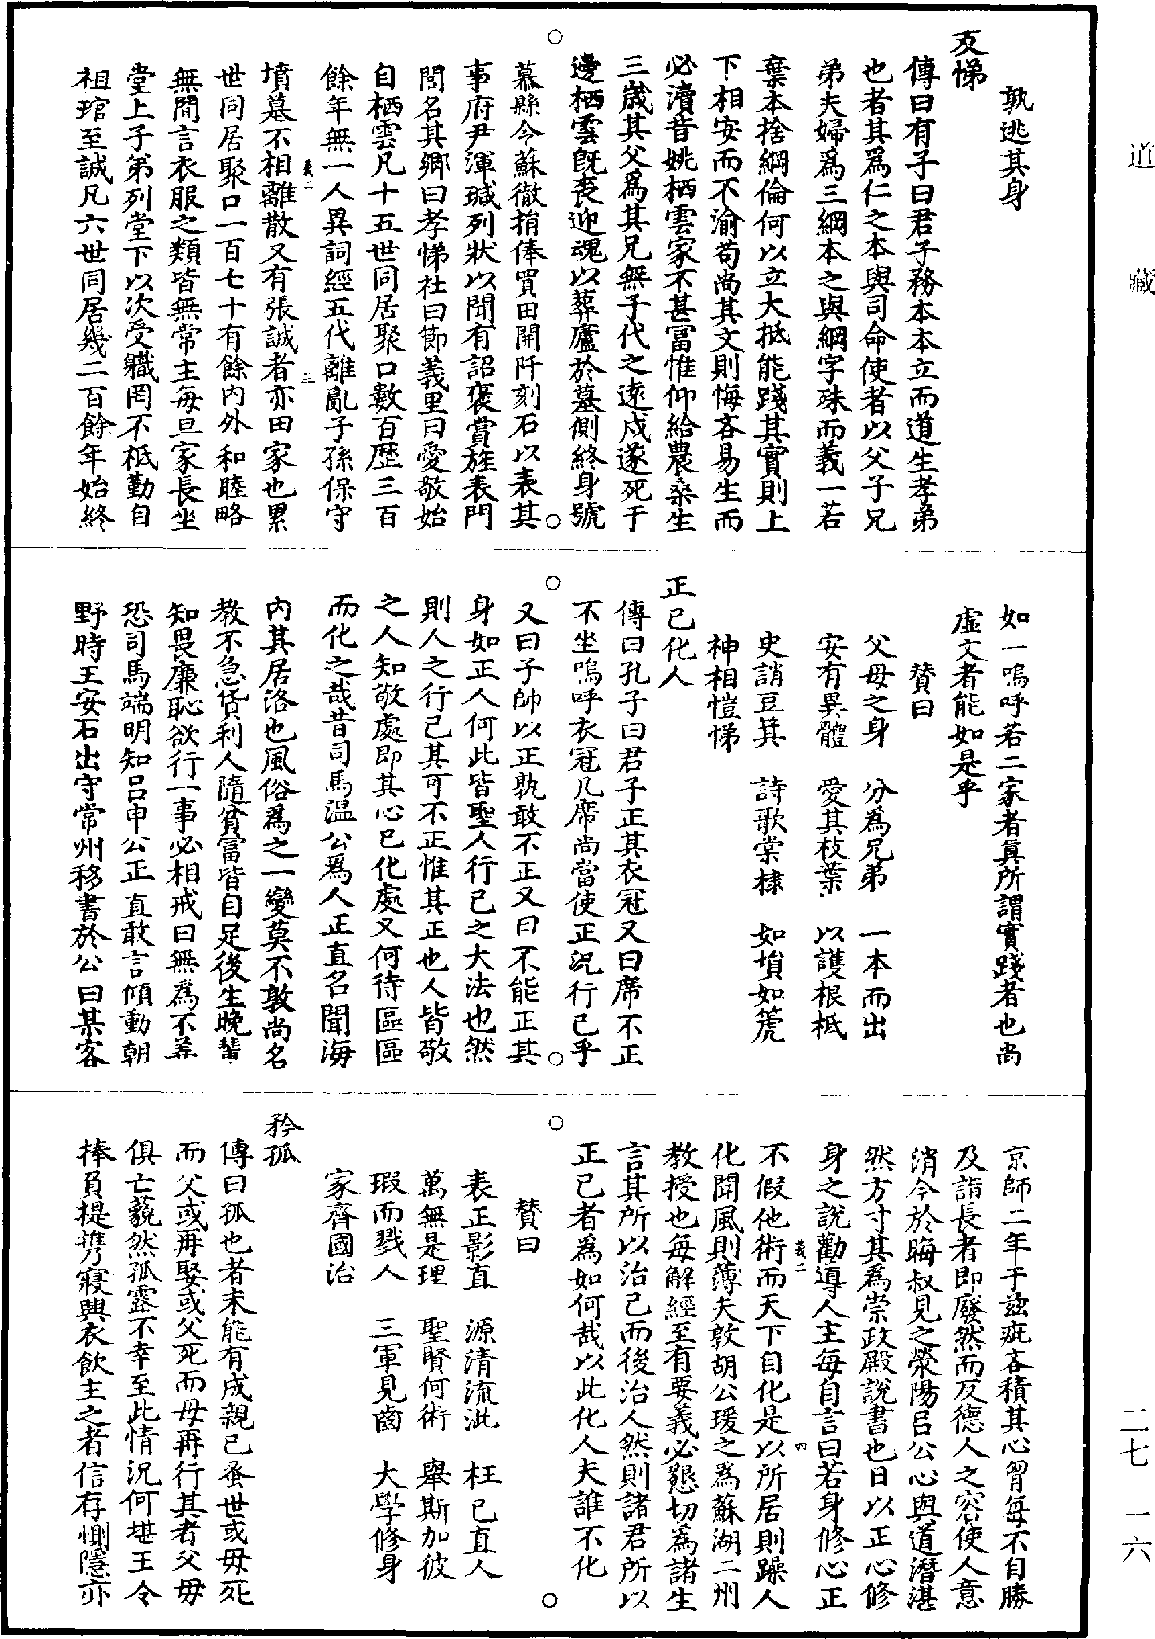 道藏
二七 一六
孰逃其身
友悌
傳曰有子曰君子務本本立而道生孝弟
也者其為仁之本與司命使者以父子兄
弟夫婦為三綱本之與綱字殊而義一若
棄本捨綱倫何以立大抵能踐其實則上
下相安而不渝苟尚其文則悔吝易生而
必瀆昔姚栖雲家不甚富惟仰給農桑生
三歲其父為其兄無子代之遠戍遂死于
邊栖雲既喪迎魂以葬廬於墓側終身號
慕縣令蘇徹捐俸買田開阡刻石以表其
事府尹渾瑊列狀以聞有詔褒賞旌表門
閭名其鄉曰孝悌社曰節義里曰愛敬始
自栖雲凡十五世同居聚口數百歷三百
餘年無一人異詞經五代離亂子孫保守
墳墓不相離散又有張誠者亦田家也累
世同居聚口一百七十有餘內外和睦略
無間言衣服之類皆無常主每旦家長坐
堂上子弟列堂下以次受職罔不祗勤自
祖琯至誠凡六世同居幾二百餘年始終
如一嗚呼若二家者真所謂實踐者也尚
虛文者能如是乎
贊曰
父母之身 分為兄弟 一本而出
安有異體 愛其枝葉 以護根柢
史誚豆萁 詩歌棠棣 如塤如箎
神相愷悌
正己化人
傳曰孔子曰君子正其衣冠又曰席不正
不坐嗚呼衣冠几席尚當使正況行己乎
又曰子帥以正孰敢不正又曰不能正其
身如正人何此皆聖人行己之大法也然
則人之行己其可不正惟其正也人皆敬
之人知敬處即其心已化處又何待區區
而化之哉昔司馬溫公為人正直名聞海
內其居洛也風俗為之一變莫不敦尚名
教不急貨利人隨貧富皆自足後生晚輩
知畏廉恥欲行一事必相戒曰無為不善
恐司馬端明知呂申公正直敢言傾動朝
野時王安石出守常州移書於公曰某客
京師二年于茲疵吝積其心胷每不自勝
及詣長者即廢然而反德人之容使人意
消今於晦叔見之滎陽呂公心與道潛湛
然方寸其為崇政殿說書也日以正心修
身之說勸導人主每自言曰若身修心正
不假他術而天下自化是以所居則躁人
化聞風則薄夫敦胡公瑗之為蘇湖二州
教授也每解經至有要義必懇切為諸生
言其所以治己而後治人然則諸君所以
正己者為如何哉以此化人夫誰不化
贊曰
表正影直 源清流泚 枉己直人
萬無是理 聖賢何術 舉斯加彼
瑕而戮人 三軍見齒 大學修身
家齊國治
矜孤
傳曰孤也者未能有成親已蚤世或母死
而父或再娶或父死而母再行其者父母
俱亡藐然孤露不幸至此情況何堪王令
捧負提携寢興衣飲主之者信存惻隱亦